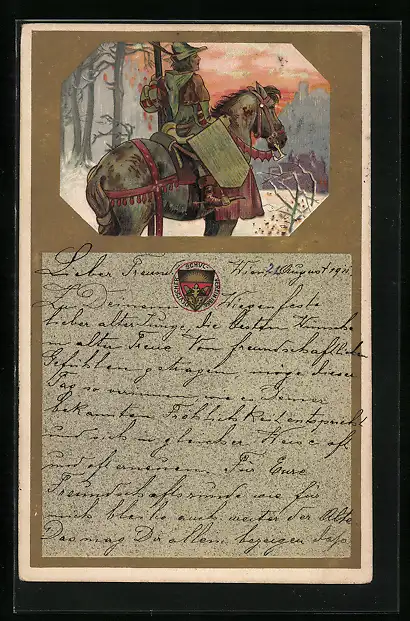 Lieber Freund Wien, 21. August 1911.
SCHUL
DEUTSCHER
VEREIN
Zu Deinem Wiegenfeste
lieber alter Junge, die besten Wünsche
in alter Treue. Von freundschaftlichen
Gefühlen getragen, möge dieser
Tag so
bekannten Fröhlichkeit entspricht
und sich in gleicher Weise oft
und oft erneuern. Für Eure
Freundschaftsrunde wie für
mich bleibe auch weiter der Alte
Das mag Dir allem bezeigen dass